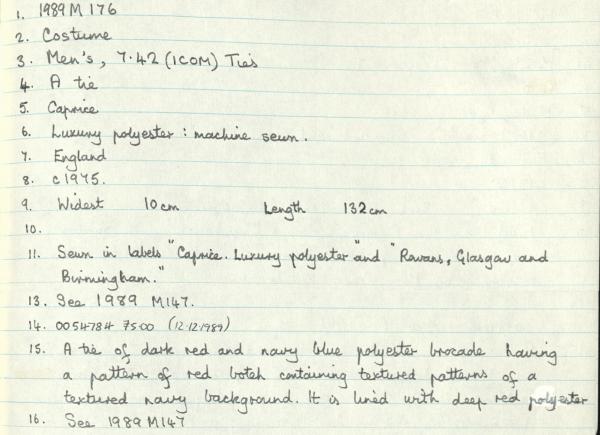 1. 1989 M 176
2. Costume
3. Men's, 7.42 (ICOM) Ties
4. A tie
5. Caprice
6. Luxury polyester : machine sewn.
7. England
8. c1975.
9. Widest 10cm Length 132cm
10.
11. Sewn in labels "Caprice. Luxury polyester" and "Rowans, Glasgow and
Birmingham."
13. See 1989 M147.
14. 0054784 75.00 (12.12.1989)
15. A tie of dark red and navy blue polyester brocade having
a pattern of red boteh containing textured patterns of a
textured navy background. It is lined with deep red polyester
16. See 1989 M147